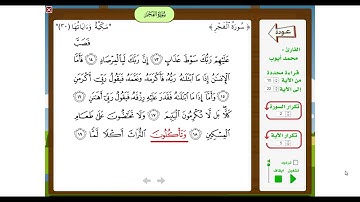 سُورَةُ الفَجْرِ
﴿ سُورَةُ ٱلْفَجْرِ ﴾
مَكِّيَّة وَءَايَاتُهَا (٣٠)
فَصَبَّ
عَلَيْهِمْ رَبُّكَ سَوْطَ عَذَابٍ ١٣ إِنَّ رَبَّكَ لَبِٱلْمِرْصَادِ ١٤ فَأَمَّا
ٱلْإِنسَٰنُ إِذَا مَا ٱبْتَلَىٰهُ رَبُّهُۥ فَأَكْرَمَهُۥ وَنَعَّمَهُۥ فَيَقُولُ رَبِّىٓ أَكْرَمَنِ
١٥ وَأَمَّآ إِذَا مَا ٱبْتَلَىٰهُ فَقَدَرَ عَلَيْهِ رِزْقَهُۥ فَيَقُولُ رَبِّىٓ أَهَٰنَنِ ١٦
كَلَّا ۖ بَل لَّا تُكْرِمُونَ ٱلْيَتِيمَ ١٧ وَلَا تَحَٰٓضُّونَ عَلَىٰ طَعَامِ
ٱلْمِسْكِينِ ١٨ وَتَأْكُلُونَ ٱلتُّرَاثَ أَكْلًا لَّمًّا ١٩
عودة
القارئ :
محمد أيوب
قراءة محددة
من الآية 10
إلى الآية 22
تكرار السورة
2
تكرار الآية
5
ترديد
تشغيل
ايقاف